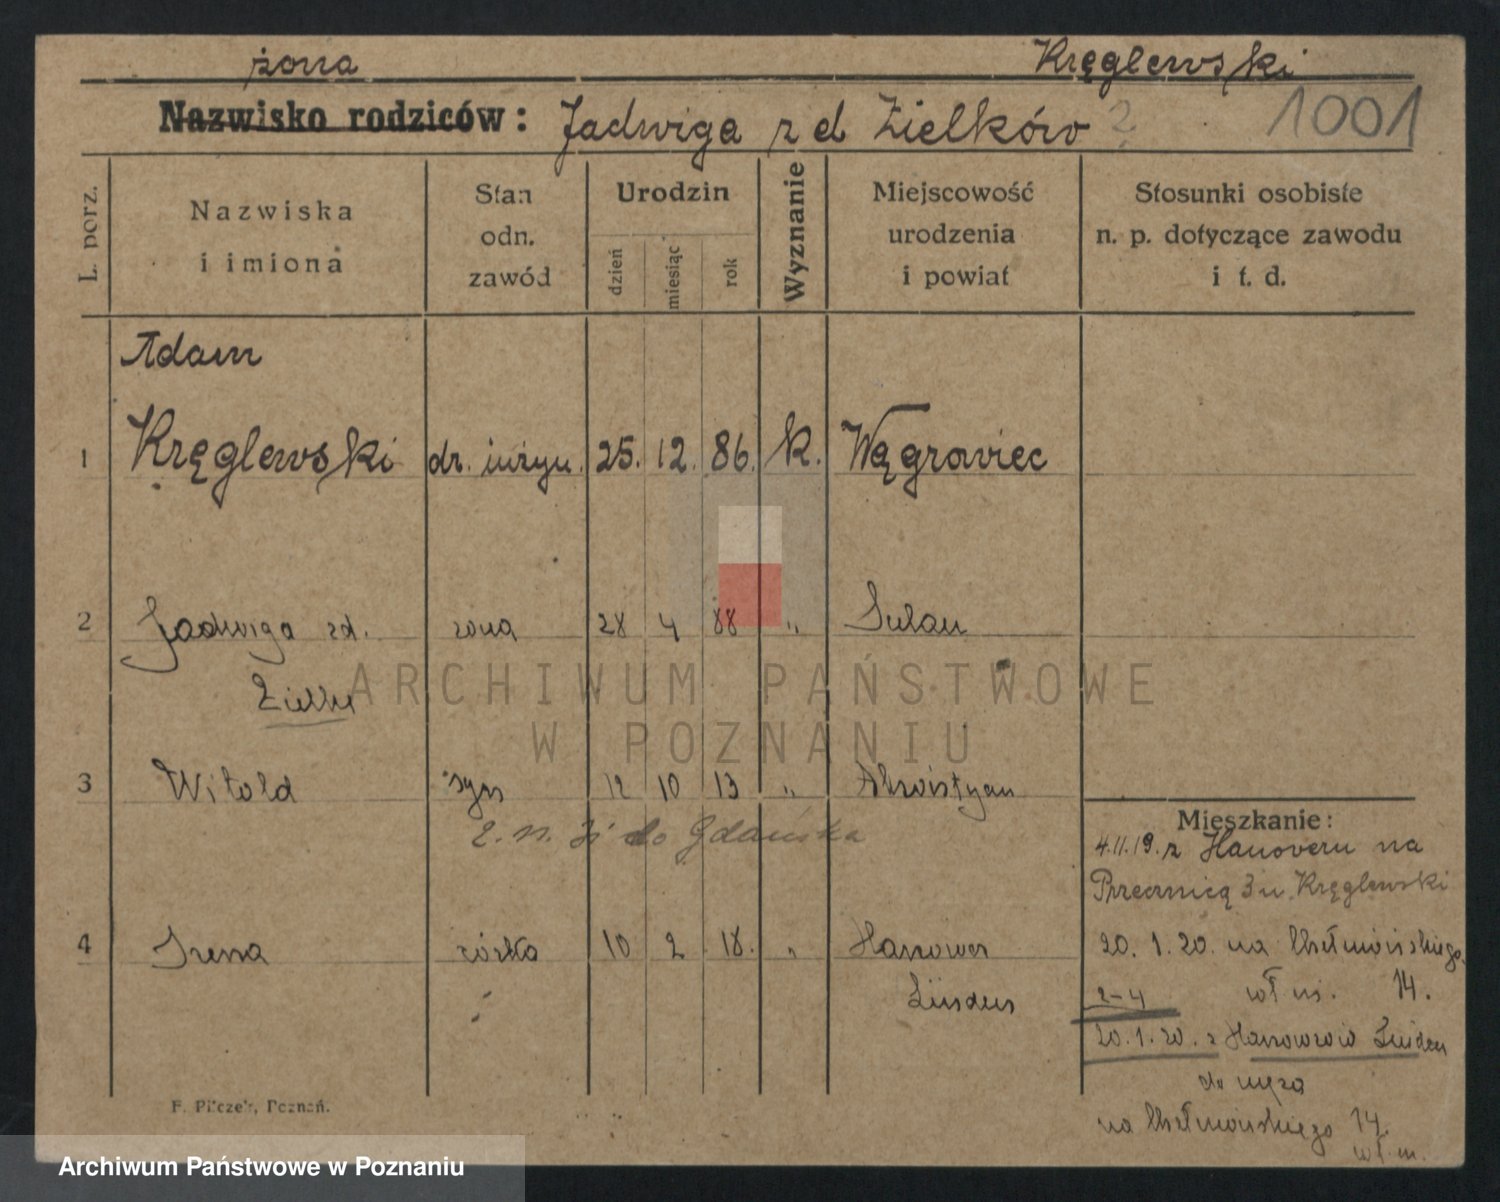 żona Kręglewski
Nazwisko rodziców: Jadwiga z d Zielków ? 1001
L. porz.
Nazwiska
i imiona
Stan
odn.
zawód
Urodzin
dzień
miesiąc
rok
Wyznanie
Miejscowość
urodzenia
i powiat
Stosunki osobiste
n. p. dotyczące zawodu
i t. d.
Adam
1 Kręglewski dr. inżyn. 25. 12. 86. k. Wągrowiec
2 Jadwiga zd. żona 28 4 88 " Sulau
Zielke
3 Witold syn 12 10 13 "
do Gdańska
4 Irena córka 10 2 18. " Hanower
Linden
Mieszkanie:
4.11.19. z Hanoveru na
Przecznicą 3 u. Kręglewski
20. 1. 20. na Chełmońskiego
2-4 wł m. 14.
20.1.20. z Linden
do męża
na Chełmońskiego 14.
wł. m.
F. Pilczek, Poznań.
ARCHIWUM PAŃSTWOWE
W POZNANIU
Archiwum Państwowe w Poznaniu